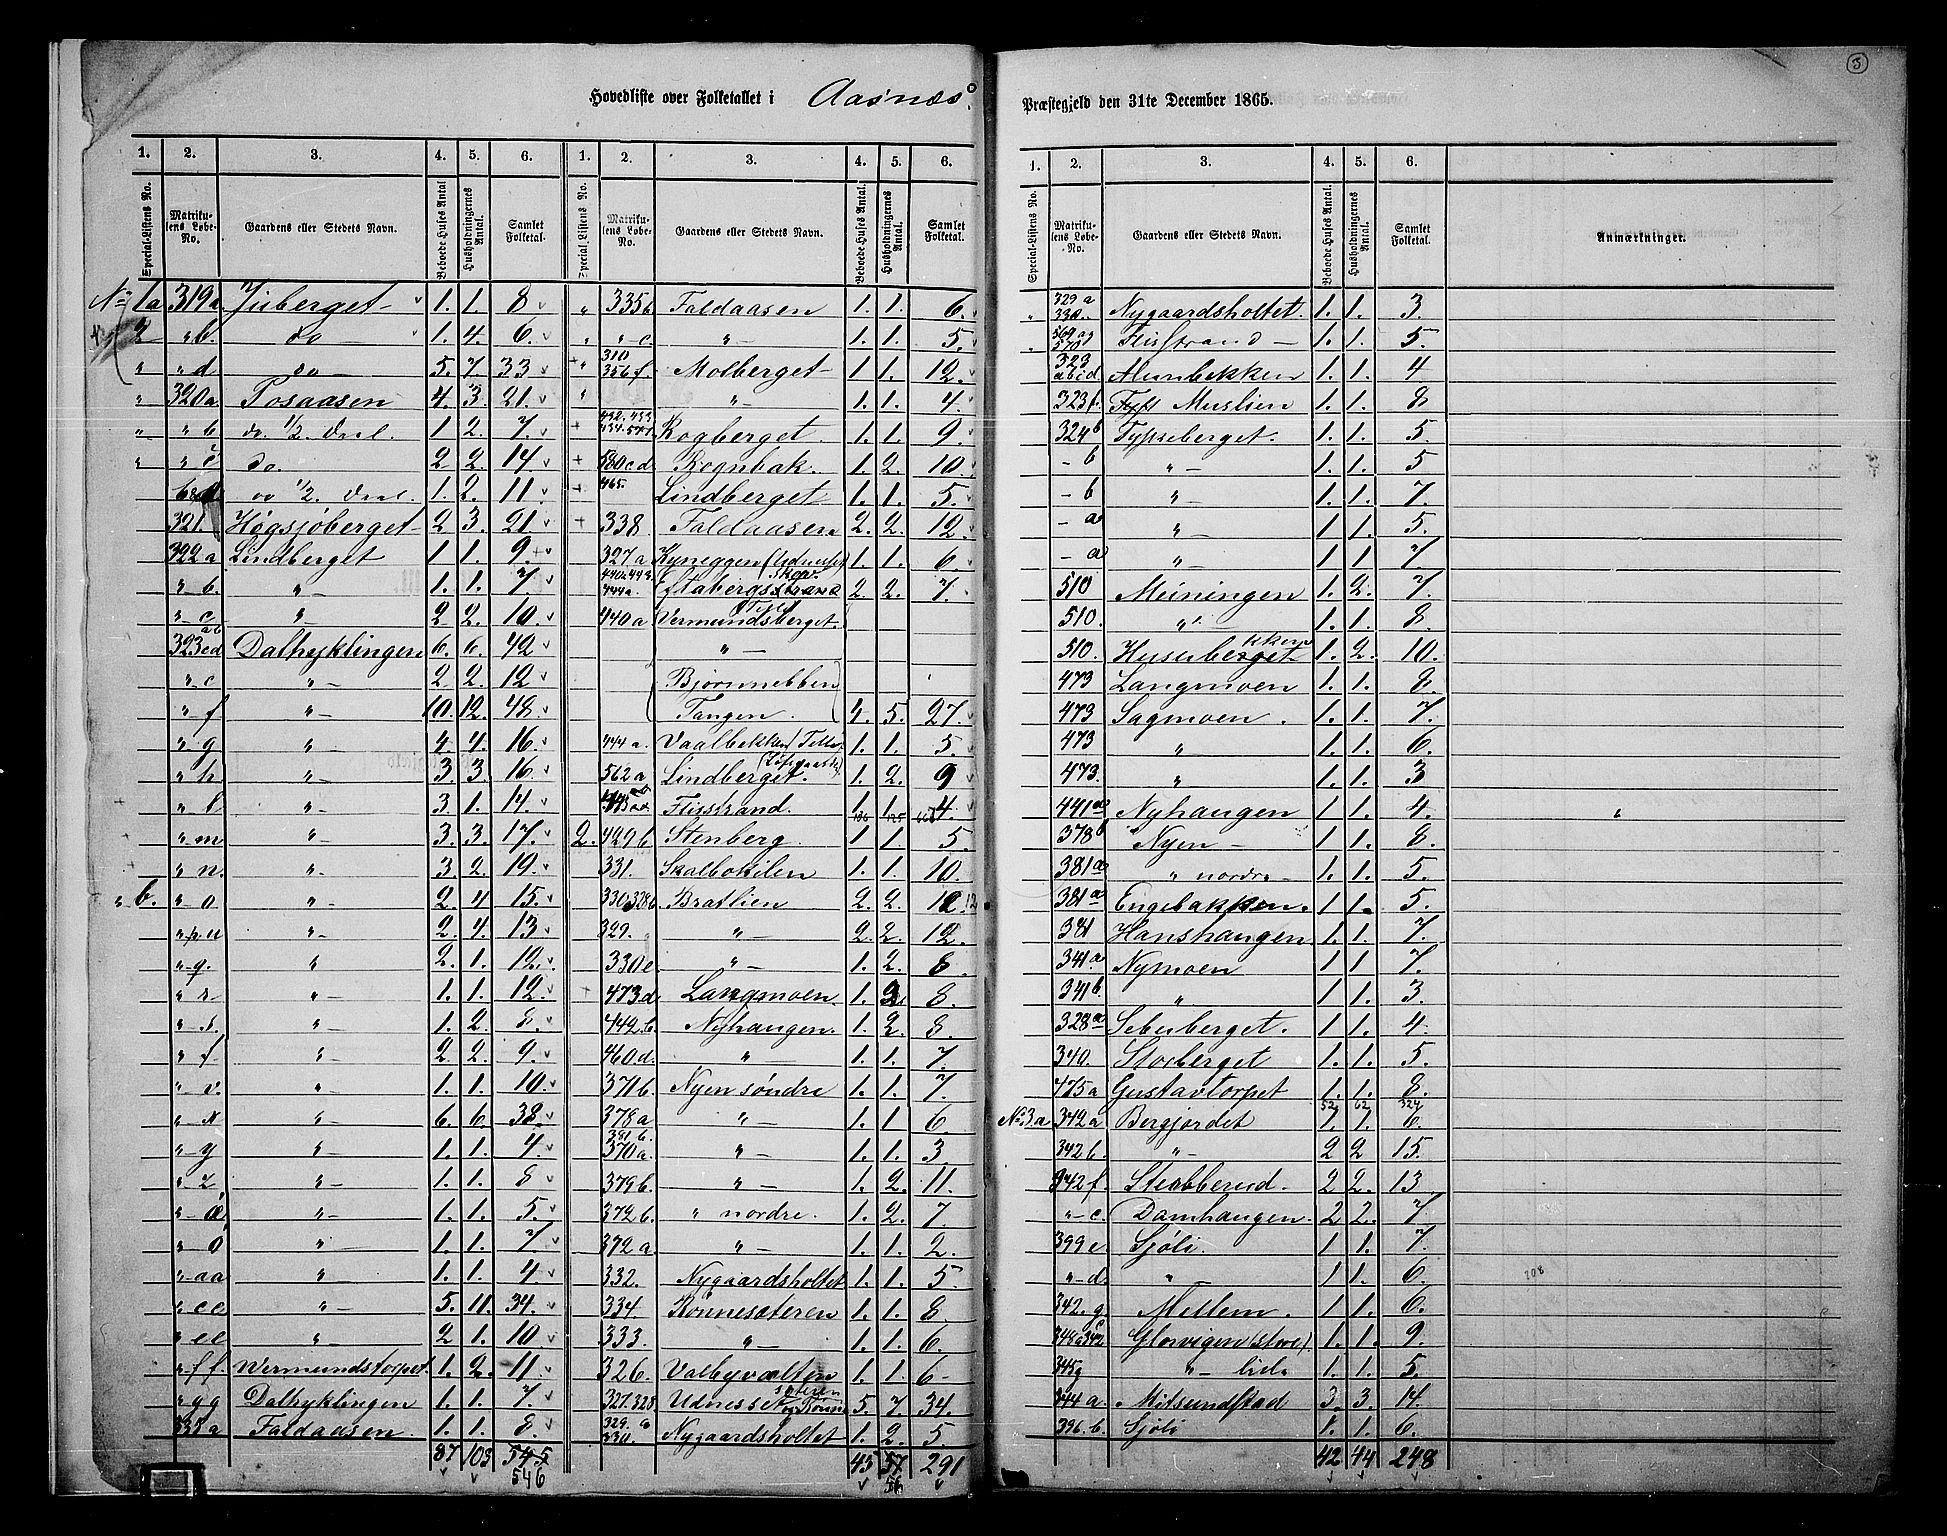 3
Hovedliste over Folketallet i Aasnæs Præstegjeld den 31te December 1865.
1. 2. 3. 4. 5. 6. 1. 2. 3. 4. 5. 6.
Special-Listens No. Matrikulens Løbe-No. Gaardens eller Stedets Navn. Beboede Huses Antal Husholdningernes Antal. Samlet Folketal. Special Listens No. Matrikulens Løbe-No. Gaardens eller Stedets Navn. Beboede Huses Antal. Husholdningernes Antal. Samlet Folketal.
No 1a 319a Juberget 1. 1. 8
" b. do 1. 4. 6.
" d do 5. 7. 33
" 320a Posaasen 4. 3. 21.
" " b do. 1/2. Deel. 1 2. 7.
" " c do. 2 2. 14.
do 1/2. Deel. 1. 2. 11.
321. Høgsjøberget 2 3. 21.
322a Lindberget 1 1. 9.
" b. " 1. 1. 7
" c " 2 2. 10.
323 ab cd Dalhyklingen 6. 6. 42
" c " 2 2. 12
" f " 10. 12. 48.
" g " 4. 4. 16.
" h. " 3. 3. 16.
" l " 3. 1. 14.
" m " 3. 3. 17.
" n. " 3. 2. 19.
" b. " o " 2. 4. 15.
" p.u " 2. 4. 13
" q. " 2. 1. 12.
" r " 1. 1. 12.
" s. " 1. 2. 8.
" f " 2 2. 9.
" v. " 1. 1. 10.
" x " 6. 6. 38.
" y " 1. 1. 4.
" z " 1. 1. 8
" æ " 1. 1. 5.
" ø " 1. 1. 7
" aa " 1. 1. 4.
" cc " 5. 11. 34.
" ee " 2 1. 10
" ff. Wermundstorpet. 1. 2. 11.
" gg Dalhyklingen 1. 1. 7.
335a Faldaasen 1. 1. 8.
87 103 545
546
" 335b Faldaasen 1. 1. 6.
" " c " 1 1. 5.
" 310 356f. Molberget 1 1. 12.
" " 1 1. 4.
432. 433 434. Rogberget. 1 1. 9.
580cd Rognbak. 1. 2. 10.
465. Lindberget 1 1. 5.
338 Faldaasen 2. 2. 12
327a Kyneggen 1. 1. 6.
444a. 2 2. 7.
440a Vermundsberget.
"
Bjørnnebben
Tangen. 4. 5. 27.
444a. Vaalbekken 1. 1. 5
562a Lindberget. 1. 2. 9
Flisstrand. 1 1. 4.
106 125
2. 429b Stenberg. 1 1. 5.
331. Skalbokilen 1 1. 10.
330.328b. Bratlien 2. 2. 12
329. " 2 2. 12.
330e " 1. 2. 8.
473d Langmoen. 1. 8.
442.b. Nyhaugen. 1. 2. 8.
460d. " 1. 1. 7.
371b. Nyen søndre 1. 1. 7.
378a " 1 1 6.
381b. 370a. " 1 1. 3.
379b. " 1. 2. 11.
372b. " nordre. 1. 2. 7.
372a " 1 1. 2.
332. Nygaardsholtet 1. 1. 5
334 Rønnesæteren 1 1. 8
333. " 1. 1. 6.
326. Valbyvolten 1 1. 6
327.328 5. 7. 34.
329.a 330. Nygaardsholtet 1. 2. 5.
45 57 291
56
1. 2. 3. 4. 5. 6.
Special-Listens No. Matrikulens Løbe-No. Gaardens eller Stedets Navn. Beboede Huses Antal. Husholdningernes Antal. Samlet Folketal. Anmærkninger.
" 329a 330. Nygaardsholtet. 1. 1. 3.
" 569 og 570 Flisstrand 1. 1. 5.
323 abcd Alunbekken 1. 1. 4
323f. Muslien 1. 1. 8
324b Tysseberget. 1. 1. 5.
- b " 1. 1. 5
- b " 1. 1. 7.
- a " 1 1. 5.
- a " 1 1. 7.
510 Meiningen 1. 2. 7.
510. " 1 1. 8.
510. 1. 2. 10.
473 Langmoen 1. 1. 8.
473 Sagmoen. 1. 1. 7.
473 " 1 1. 6.
473. " 1 1. 3
441a Nyhaugen 1 1. 4.
378b Nyen 1 1. 8.
381a " nordre 1. 1. 5.
381a Engebakken. 1 1. 5.
381 Hanshaugen 1. 1. 7.
341a Nymoen 1 1 7.
341b. " 1 1. 3.
328a Seberberget. 1 1. 4.
340. Storberget 1. 1. 5.
475a Gustavtorpet 1. 1. 8.
52 62 324
No 3a 342a Bergjordet 1. 1. 6.
342b. " 2 2 15.
342f. Stubberud. 2 2. 13
" c. Damhaugen. 2 2. 7
399e Sjøli. 1 1. 7.
" d " 1 1. 6. 208
342.g Mellem. 1 1. 6.
Glorvigen (store). 1 1. 9.
345g " lille 1 1. 5.
344a Mitsundstad 3. 3. 14.
396.b. Sjøli 1. 1. 6.
42 44 248